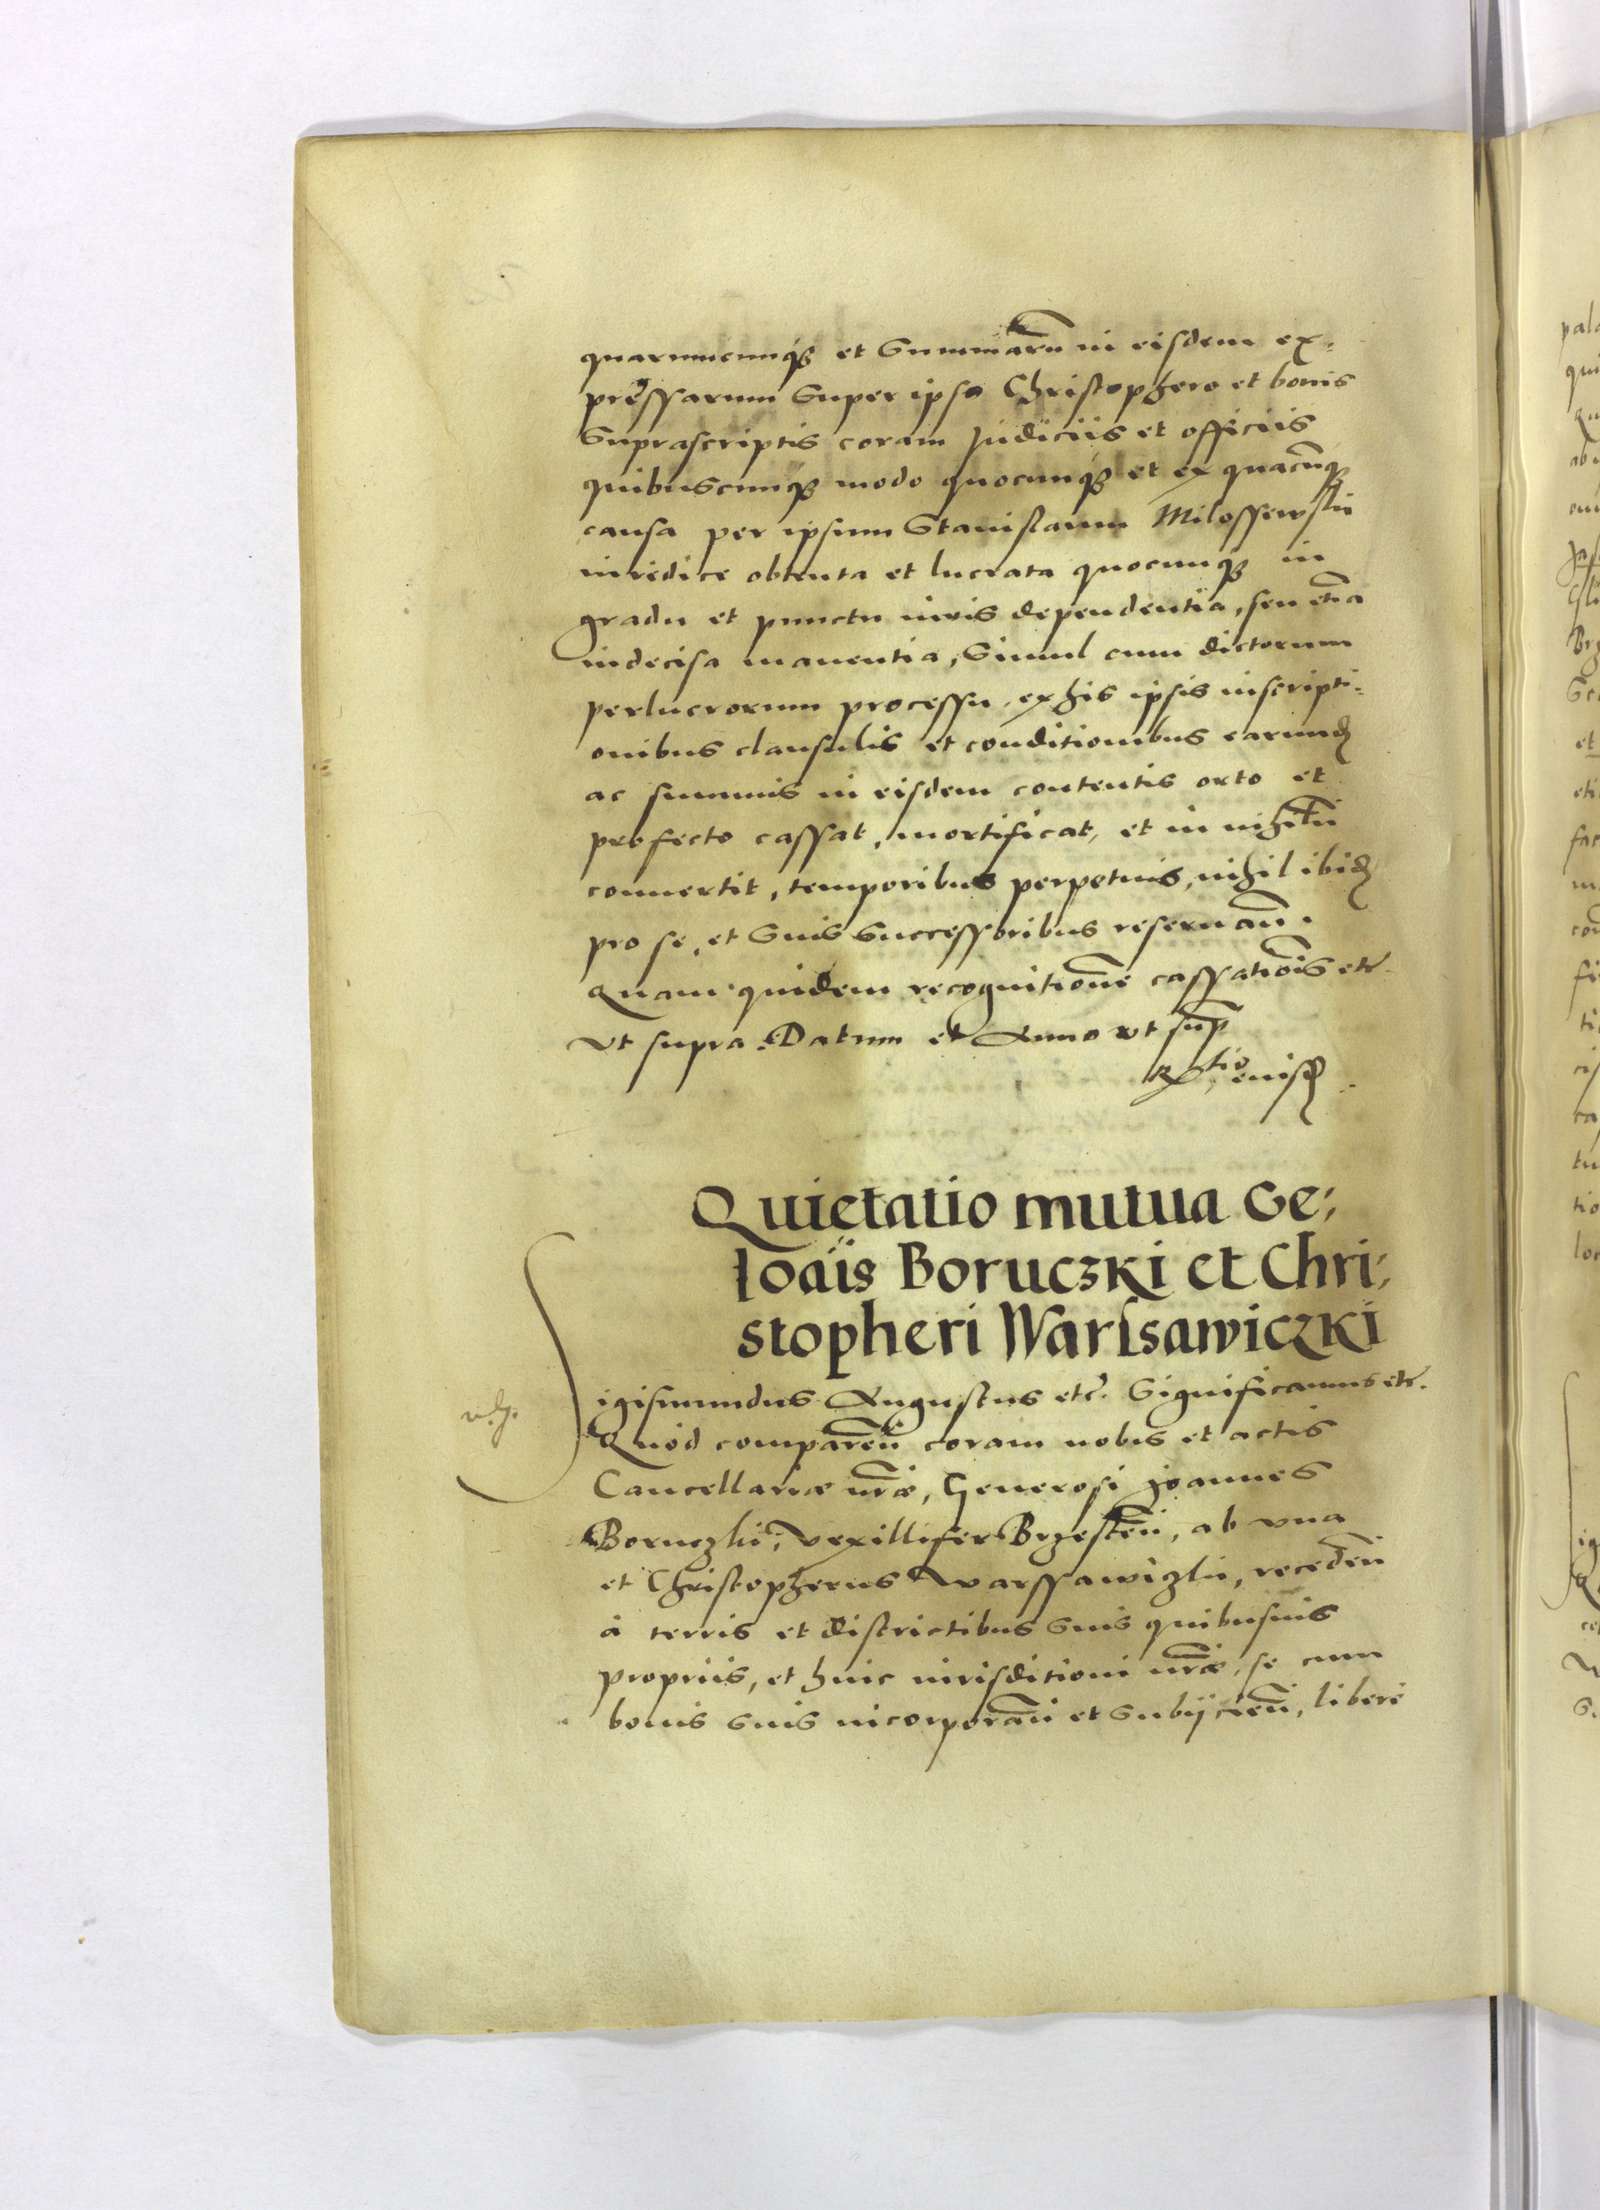 quarumcunq₃ et Summarū in eisdem ex-
pressarum Super ipso Christophero et bonis
Suprascriptis coram Judiciis et officiis
quibuscunq₃ modo quocunq₃ et ex quacūq₃
causa per ipsum Stanislaum Milossewski
iuridice obtenta et lucrata quocunq₃ in
gradu et punctu iuris dependentia, seu etiā
indecisa manentia, Simul cum dictorum
perlucrorum processu, ex his ipsis inscripti-
onibus clausulis et conditionibus earund
ac summis in eisdem contentis orto et
profecto cassat, mortificat, et in nihilū
convertit, temporibus perpetuis, nihil ibid
pro se, et Suis Successoribus reservan̄.
Quam quidem recognitionē cassatiōis etc.
Vt supra. Datum et Anno vt sup
Rtio eiusd
Quietatio mutua Ge-
Ioāis Boruczki et Chri-
stopheri Warssawiczki
Sigismundus Augustus etc. Significamus etc.
Quod comparen̄ coram nobis et actis
Cancellariæ nræ, Generosi Joannes
Boruczki, Vexillifer Brzesten̄, ab vna
et Christopherus Warssawiczki, receden̄
à terris et districtibus Suis quibusuis
propriis, et huic iurisditioni nræ, se cum
bonis suis incorporan̄ et Subijcien̄, liberè